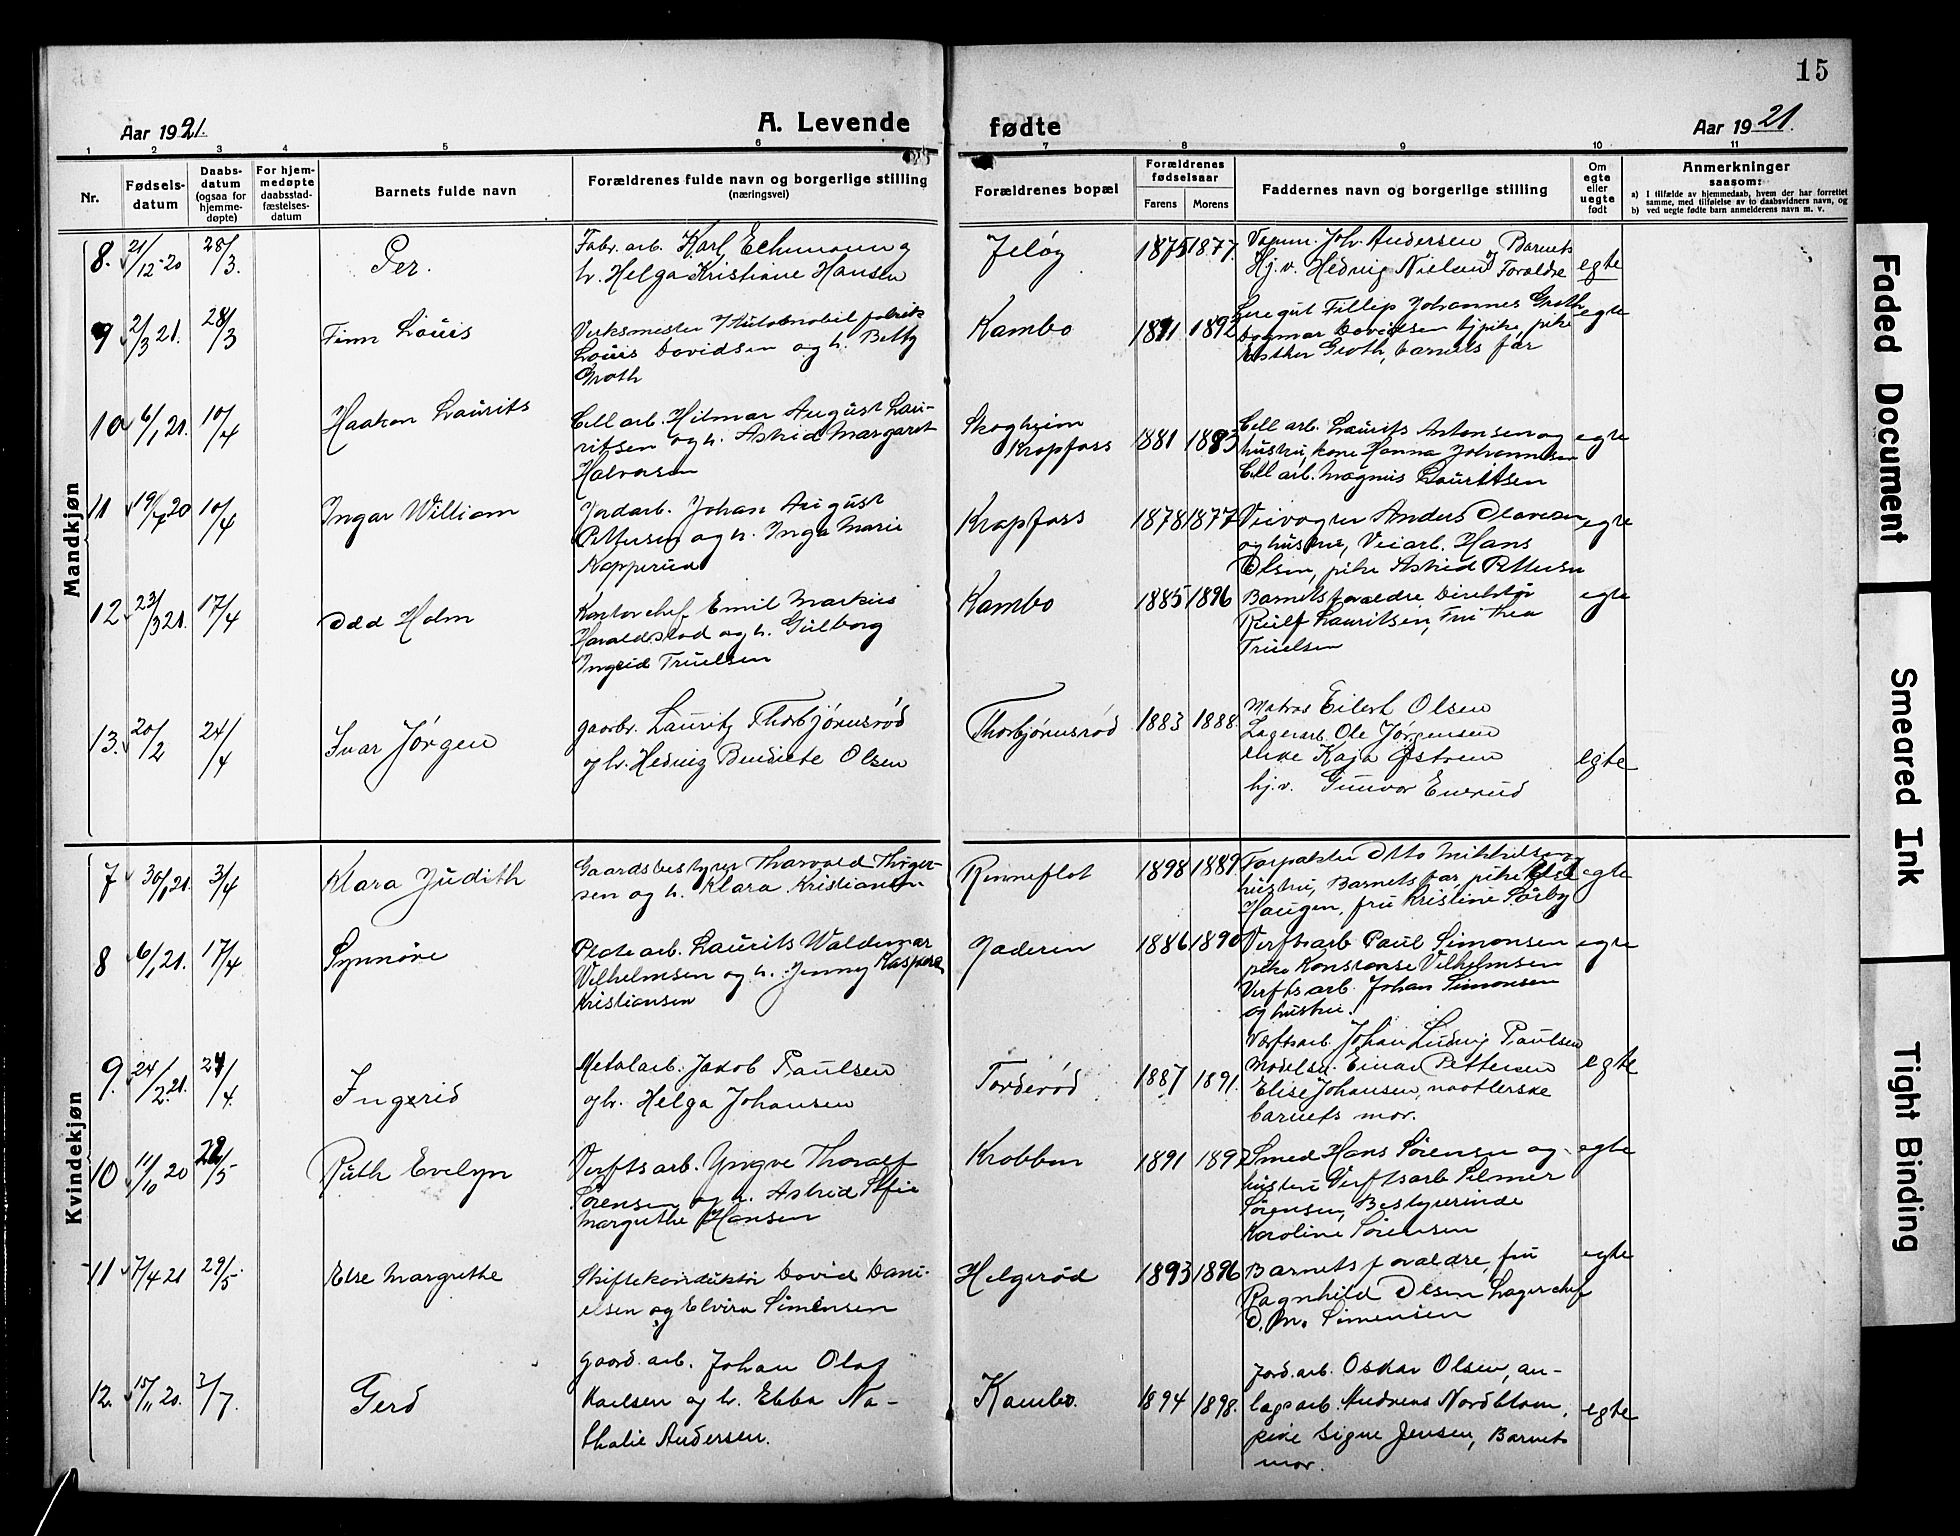 15
Aar 1921.
A. Levende
fødte
Aar 1921.
1 2 3 4 5 6 7 8 9 10 11
Nr.
Fødsels-
datum
Daabs-
datum
(ogsaa for
hjemme-
døpte)
For hjem-
medøpte
daabsstad-
fæstelses-
datum
Barnets fulde navn
Forældrenes fulde navn og borgerlige stilling
(næringsvei)
Forældrenes bopæl
Forældrenes
fødselsaar
Farens Morens
Faddernes navn og borgerlige stilling
Om
egte
eller
uegte
født
Anmerkninger
saasom:
a) I tilfælde av hjemmedaab, hvem der har forrettet
samme, med tilføielse av to daabsvidners navn, og
b) ved uegte fødte barn anmelderens navn m. v.
Mandkjøn
8. 21/12-20 28/3. Per.
Fabr. arb. Karl Echmann og
h. Helga Kristiane Hansen
Jeløy 1875 1877.
Joh. Andersen
Hj.v. Hedvig Nielsen og Barnets
Forældre
egte
9 2/3 21. 28/3 Finn Louis
Verksmester I Automobil fabrik
Louis Davidsen og h. Betty
Groth
Kambo 1891 1892
Fillip Johannes Groth
Dagmar Davidsen hjpike, pike
Esther Groth, barnets far
egte
10 6/1 21. 10/4 Haakon Laurits
Cell arb. Hilmar August Lau-
ritsen og h. Astrid Margaret
Halvorsen
Skogheim
Krapfoss
1881 1883
Cell arb. Laurits Antonsen og
hustru, kone Hanna Johannesen
Cell arb. Magnus Lauritsen
egte
11 10/4 Ingar William
Jordarb. Johan August
Pettersen og h. Inga Marie
Napperud
Krapfoss 1878 1877
Veivogter Anders Olavesen
og hustru, Veiarb. Hans
Olsen, pike Astrid Pettersen
egte
12 23/3 21. 17/4 Odd Holm
Kontorchef Emil Markus
Haraldstad og h. Gulborg
Ingrid Truelsen
Kambo 1885 1896
Barnets foraldre Direktør
Rulf Lauritsen, Fru Thea
Truelsen
egte
13. 20/2 24/4 Ivar Jørgen
gaarbr. Lauritz Thorbjørnsrød
og h. Hedvig Bendicte Olsen
Thorbjørnsrød 1883 1888.
Matros Eilert Olsen
Lagerarb. Ole Jørgensen
enke Kaja Østrem
hj.v. Gunvor Enerud
egte
Kvindekjøn
7 30/1 21. 3/4 Klara Judith
Gaardsbestyrer Thorvald Thøger-
sen og h. Klara Kristiansen
Rinneflot 1898 1889
Forpakter Otto Mikkelsen og
hustru, Barnets far pike
Haugen, fru Kristine Sørby
egte
8 6/1 21. 17/4 Synnøve
Plate arb. Laurits Waldemar
Vilhelmsen og h. Jenny Kaspara
Kristiansen
Jaderin 1886 1890
Verftsarb Paul Simonsen
pike Konstanse Vilhelmsen
Verftsarb. Johan Simonsen
og hustru.
egte
9. 24/2 21. 24/4. Ingerid
Metalarb. Jakob Paulsen
og h. Helga Johansen
Torderød 1887 1891.
Verftsarb. Johan Ludvig Paulsen
Modelsn. Einar Pettersen
Elise Johansen, naatlerske
barnets mor.
egte
10 11/10 20 22/5 Ruth Evelyn
Verftsarb. Yngve Thoralf
Sørensen og h. Astrid Sofie
Margrethe Hansen
Krobben 1891 1892
Smed Hans Sørensen og
hustru Verftsarb Hilmer
Sørensen, Bestyrerinde
Karoline Sørensen
egte
11 7/4 21 29/5. Else Margrethe
Skiftekonduktør David Dani-
elsen og Elvira Simensen
Helgerød 1893 1896
Barnets foraldre, fru
Ragnhild Olsen Lagerchef
O. M. Simensen
egte
12. 15/11 20. 3/7. Gerd
Gaard. arb. Johan Olaf
Karlsen og h. Ebba Na-
thalie Andersen.
Kambo. 1894 1898.
Jord.arb. Oskar Olsen, an-
lægsarb. Andreas Nordblom,
pike Signe Jensen, Barnets
mor.
egte
Faded Document
Smeared Ink
Tight Binding